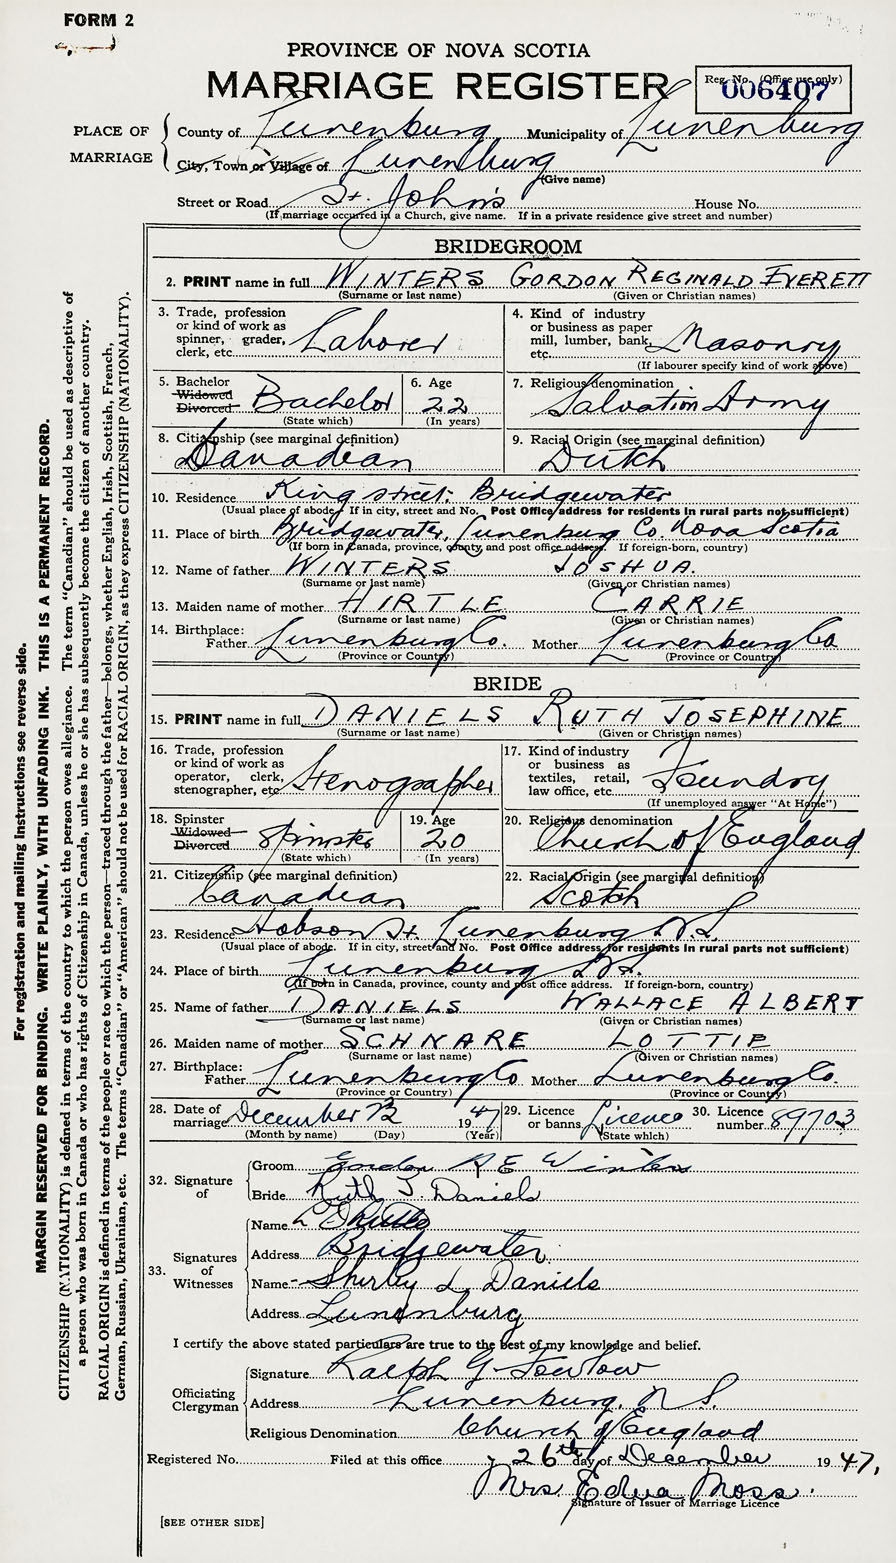 FORM 2
PROVINCE OF NOVA SCOTIA
MARRIAGE REGISTER
Reg. No. (Office use only)
006407
PLACE OF MARRIAGE
County of Lunenburg Municipality of Lunenburg
City, Town or Village of Lunenburg
(Give name)
Street or Road St. John's House No.
(If marriage occurred in a Church, give name. If in a private residence give street and number)
BRIDEGROOM
2. PRINT name in full WINTERS GORDON REGINALD EVERETT
(Surname or last name) (Given or Christian names)
3. Trade, profession or kind of work as spinner, grader, clerk, etc. Laborer
4. Kind of industry or business as paper mill, lumber, bank, etc. Masonry
(If labourer specify kind of work above)
5. Bachelor Widowed Divorced Bachelor
(State which)
6. Age 22
(In years)
7. Religious denomination
Salvation Army
8. Citizenship (see marginal definition)
Canadian
9. Racial Origin (see marginal definition)
Dutch
10. Residence King street: Bridgewater
(Usual place of abode. If in city, street and No. Post Office address for residents in rural parts not sufficient)
11. Place of birth Bridgewater, Lunenburg Co. Nova Scotia
(If born in Canada, province, county, and post office address. If foreign-born, country)
12. Name of father WINTERS JOSHUA.
(Surname or last name) (Given or Christian names)
13. Maiden name of mother HIRTLE CARRIE
(Surname or last name) (Given or Christian names)
14. Birthplace:
Father Lunenburg Co. Mother Lunenburg Co
(Province or Country) (Province or Country)
BRIDE
15. PRINT name in full DANIELS RUTH JOSEPHINE
(Surname or last name) (Given or Christian names)
16. Trade, profession or kind of work as operator, clerk, stenographer, etc Stenographer
17. Kind of industry or business as textiles, retail, law office, etc. Foundry
(If unemployed answer "At Home")
18. Spinster Widowed Divorced Spinster
(State which)
19. Age 20
(In years)
20. Religious denomination
Church of England
21. Citizenship (see marginal definition)
Canadian
22. Racial Origin (see marginal definition)
Scotch
23. Residence Hobson St. Lunenburg N.S.
(Usual place of abode. If in city, street and No. Post Office address for residents in rural parts not sufficient)
24. Place of birth Lunenburg N.S.
(If born in Canada, province, county and post office address. If foreign-born, country)
25. Name of father DANIELS WALLACE ALBERT
(Surname or last name) (Given or Christian names)
26. Maiden name of mother SCHNARE LOTTIE
(Surname or last name) (Given or Christian names)
27. Birthplace:
Father Lunenburg Co Mother Lunenburg Co.
(Province or Country) (Province or Country)
28. Date of marriage December 1947
(Month by name) (Day) (Year)
29. Licence or banns Licence
(State which)
30. Licence number 89703
32. Signature of
Groom Gordon R E Winters
Bride Ruth J. Daniels
33. Signatures of Witnesses
Name
Address Bridgewater
Name Shirley L Daniels
Address Lunenburg
I certify the above stated particulars are true to the best of my knowledge and belief.
Officiating Clergyman
Signature Ralph G.
Address Lunenburg, N S.
Religious Denomination Church of England
Registered No. Filed at this office 26th day of December 1947,
Mrs. Edna Moss.
Signature of Issuer of Marriage Licence
[SEE OTHER SIDE]
For registration and mailing instructions see reverse side.
MARGIN RESERVED FOR BINDING. WRITE PLAINLY, WITH UNFADING INK. THIS IS A PERMANENT RECORD.
CITIZENSHIP (NATIONALITY) is defined in terms of the country to which the person owes allegiance. The term "Canadian" should be used as descriptive of
a person who was born in Canada or who has rights of Citizenship in Canada, unless he or she has subsequently become the citizen of another country.
RACIAL ORIGIN is defined in terms of the people or race to which the person—traced through the father—belongs, whether English, Irish, Scottish, French,
German, Russian, Ukrainian, etc. The terms "Canadian" or "American" should not be used for RACIAL ORIGIN, as they express CITIZENSHIP (NATIONALITY).